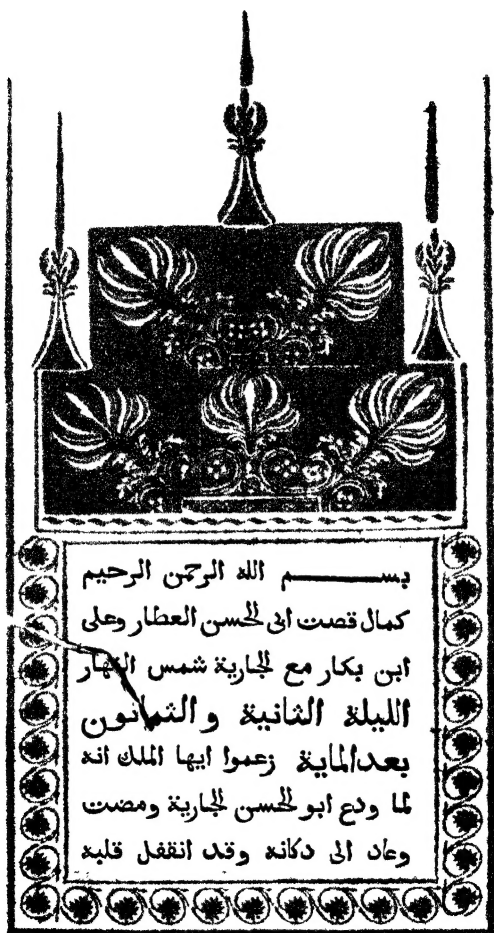 بســـــم الله الرحمن الرحيم
كمال قصت ابى الحسن العطار وعلى
ابن بكار مع الجارية شمس النهار
الليلة الثانية والثمانون
بعدالماية زعموا ايها الملك انه
لما ودع ابو الحسن الجارية ومضت
وعاد الى دكانه وقد انقفل قلبه